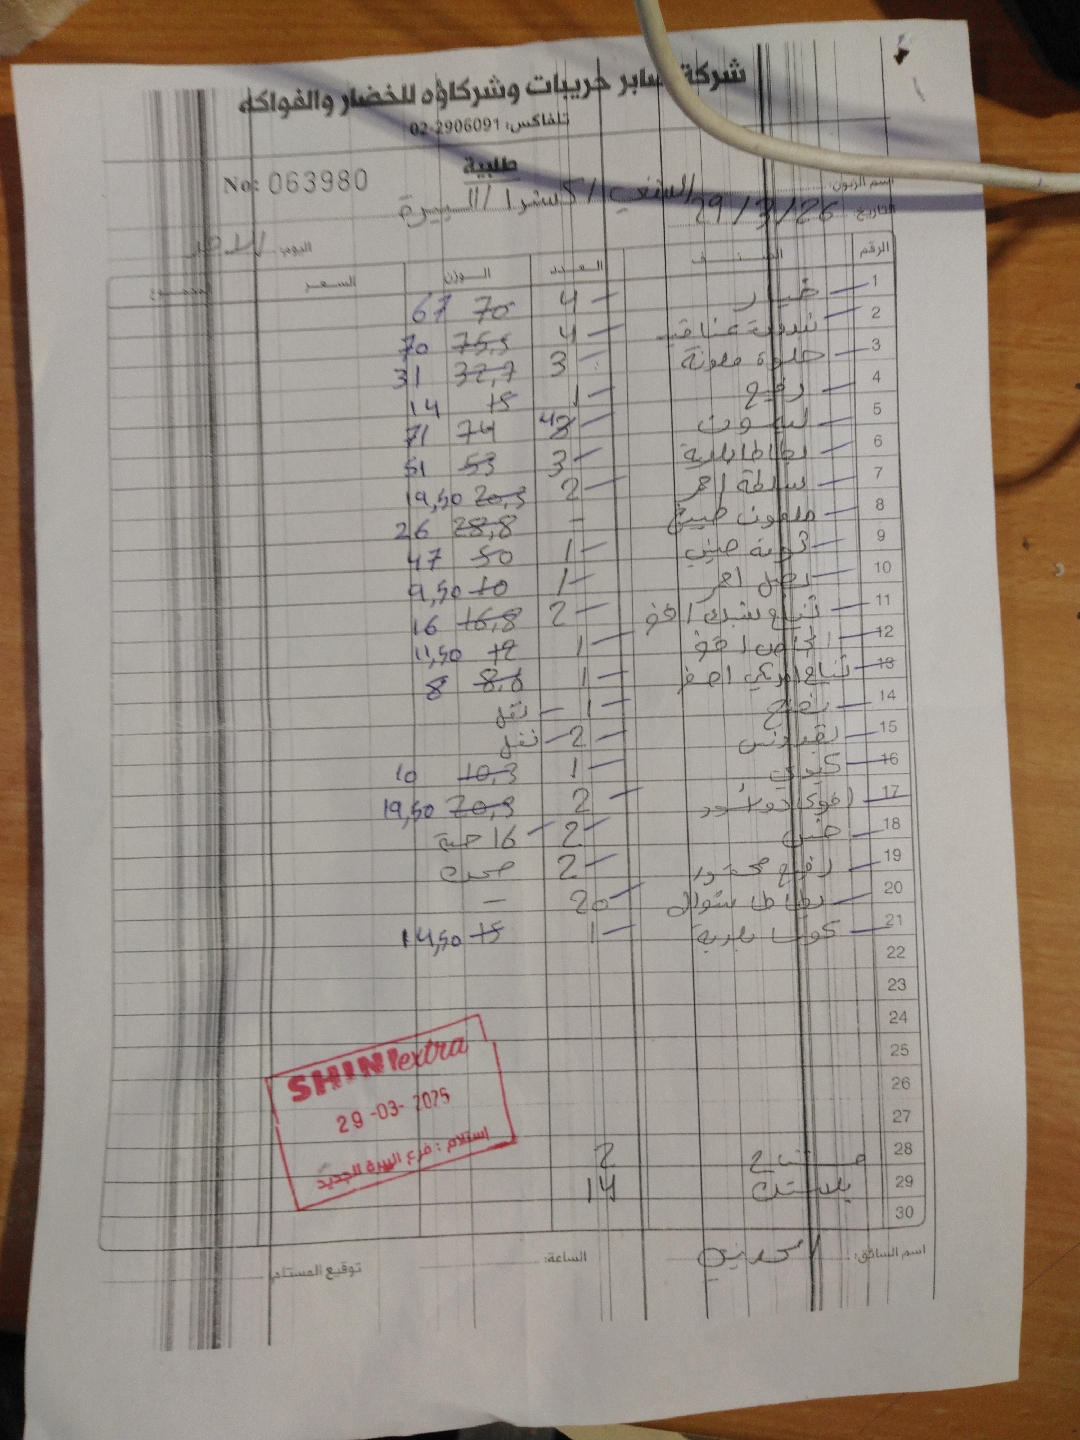 شركة صابر حريبات وشركاؤه للخضار والفواكه
تلفاكس: 02-2906091
طلبية
No: 063980
اسم الزبون: الشني اكسترا / البيرة
التاريخ: 29/3/26
اليوم: الاحد
الرقم الصنف العدد الوزن السعر المجموع
1 خيار 4 70 67
2 بندورة عناقيد 4 75,5 70
3 حلوة ملونة 3 32,7 31
4 رفيع 1 15 14
5 ليمون 4 74 71
6 بطاطا بلدية 3 53 51
7 سلطة احمر 2 20,3 19,50
8 ملفوف طبيخ - 28,8 26
9 ثومة صيني 1 50 47
10 بصل احمر 1 10 9,50
11 تفاح سبرك اخضر 2 16,8 16
12 اجاص اخضر 1 12 11,50
13 تفاح امريكي اصفر 1 8,8 8
14 نعنع 1 - نقل
15 بقدونس 2 - نقل
16 كيوي 1 10,3 10
17 2 20,3 19,50
18 خس 2 16 حبة
19 رفيع 2 صحن
20 بطاطا شوال 20 -
21 كوسا بلدية 1 15 14,50
22
23
24
25
26
27
28 2
29 بلاستك 14
30
SHINI extra
29-03-2025
استلام: فرع البيرة الجديد
اسم السائق:
الساعة:
توقيع المستلم